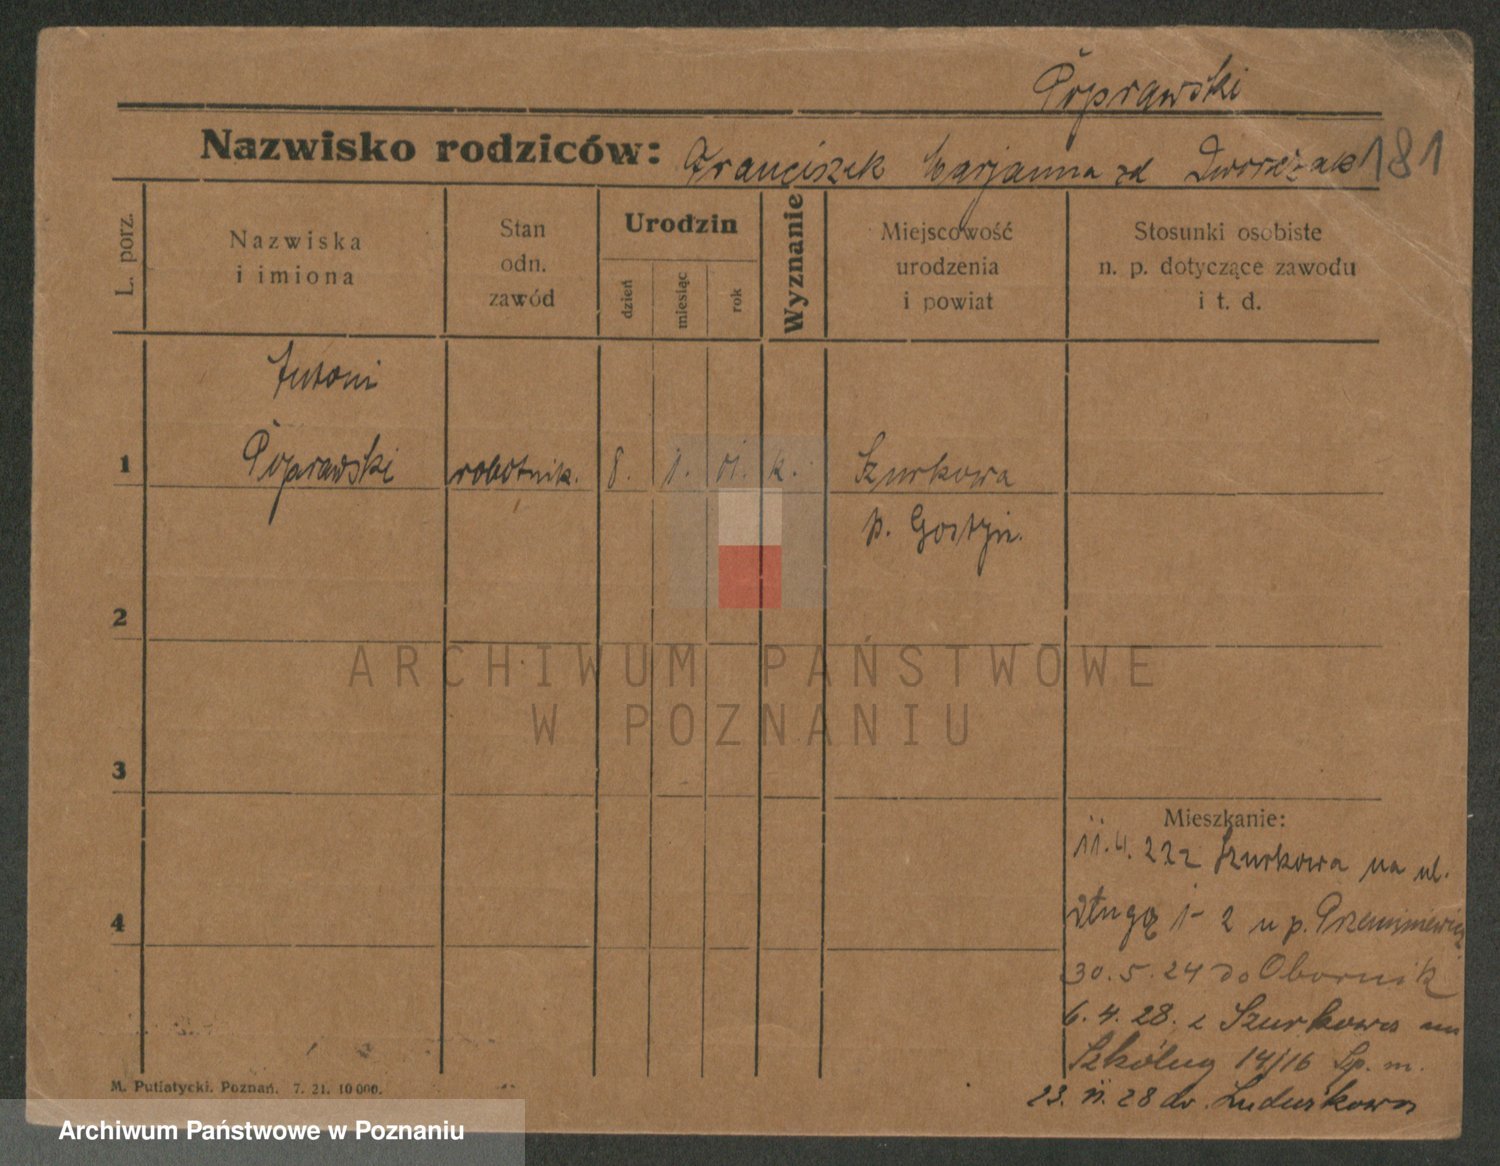 Poprawski
Nazwisko rodziców: Franciszek Marjanna zd Dworczak 181
L. porz.
Nazwiska
i imiona
Stan
odn.
zawód
Urodzin
dzień
miesiąc
rok
Wyznanie
Miejscowość
urodzenia
i powiat
Stosunki osobiste
n. p. dotyczące zawodu
i t. d.
Antoni
1 Poprawski robotnik. 8. 1. 01. k. Szurkowa
p. Gostyń.
2
3
4
Mieszkanie:
11.4.22 z Szurkowa na ul.
Długą 1- 2 u p.
30.5.24 do Obornik
6.4.28. z Szurkowa
Szkólną 14/16 Sp. m.
23. 28 do
M. Putiatycki. Poznań. 7. 21. 10 000.
ARCHIWUM PAŃSTWOWE
W POZNANIU
Archiwum Państwowe w Poznaniu